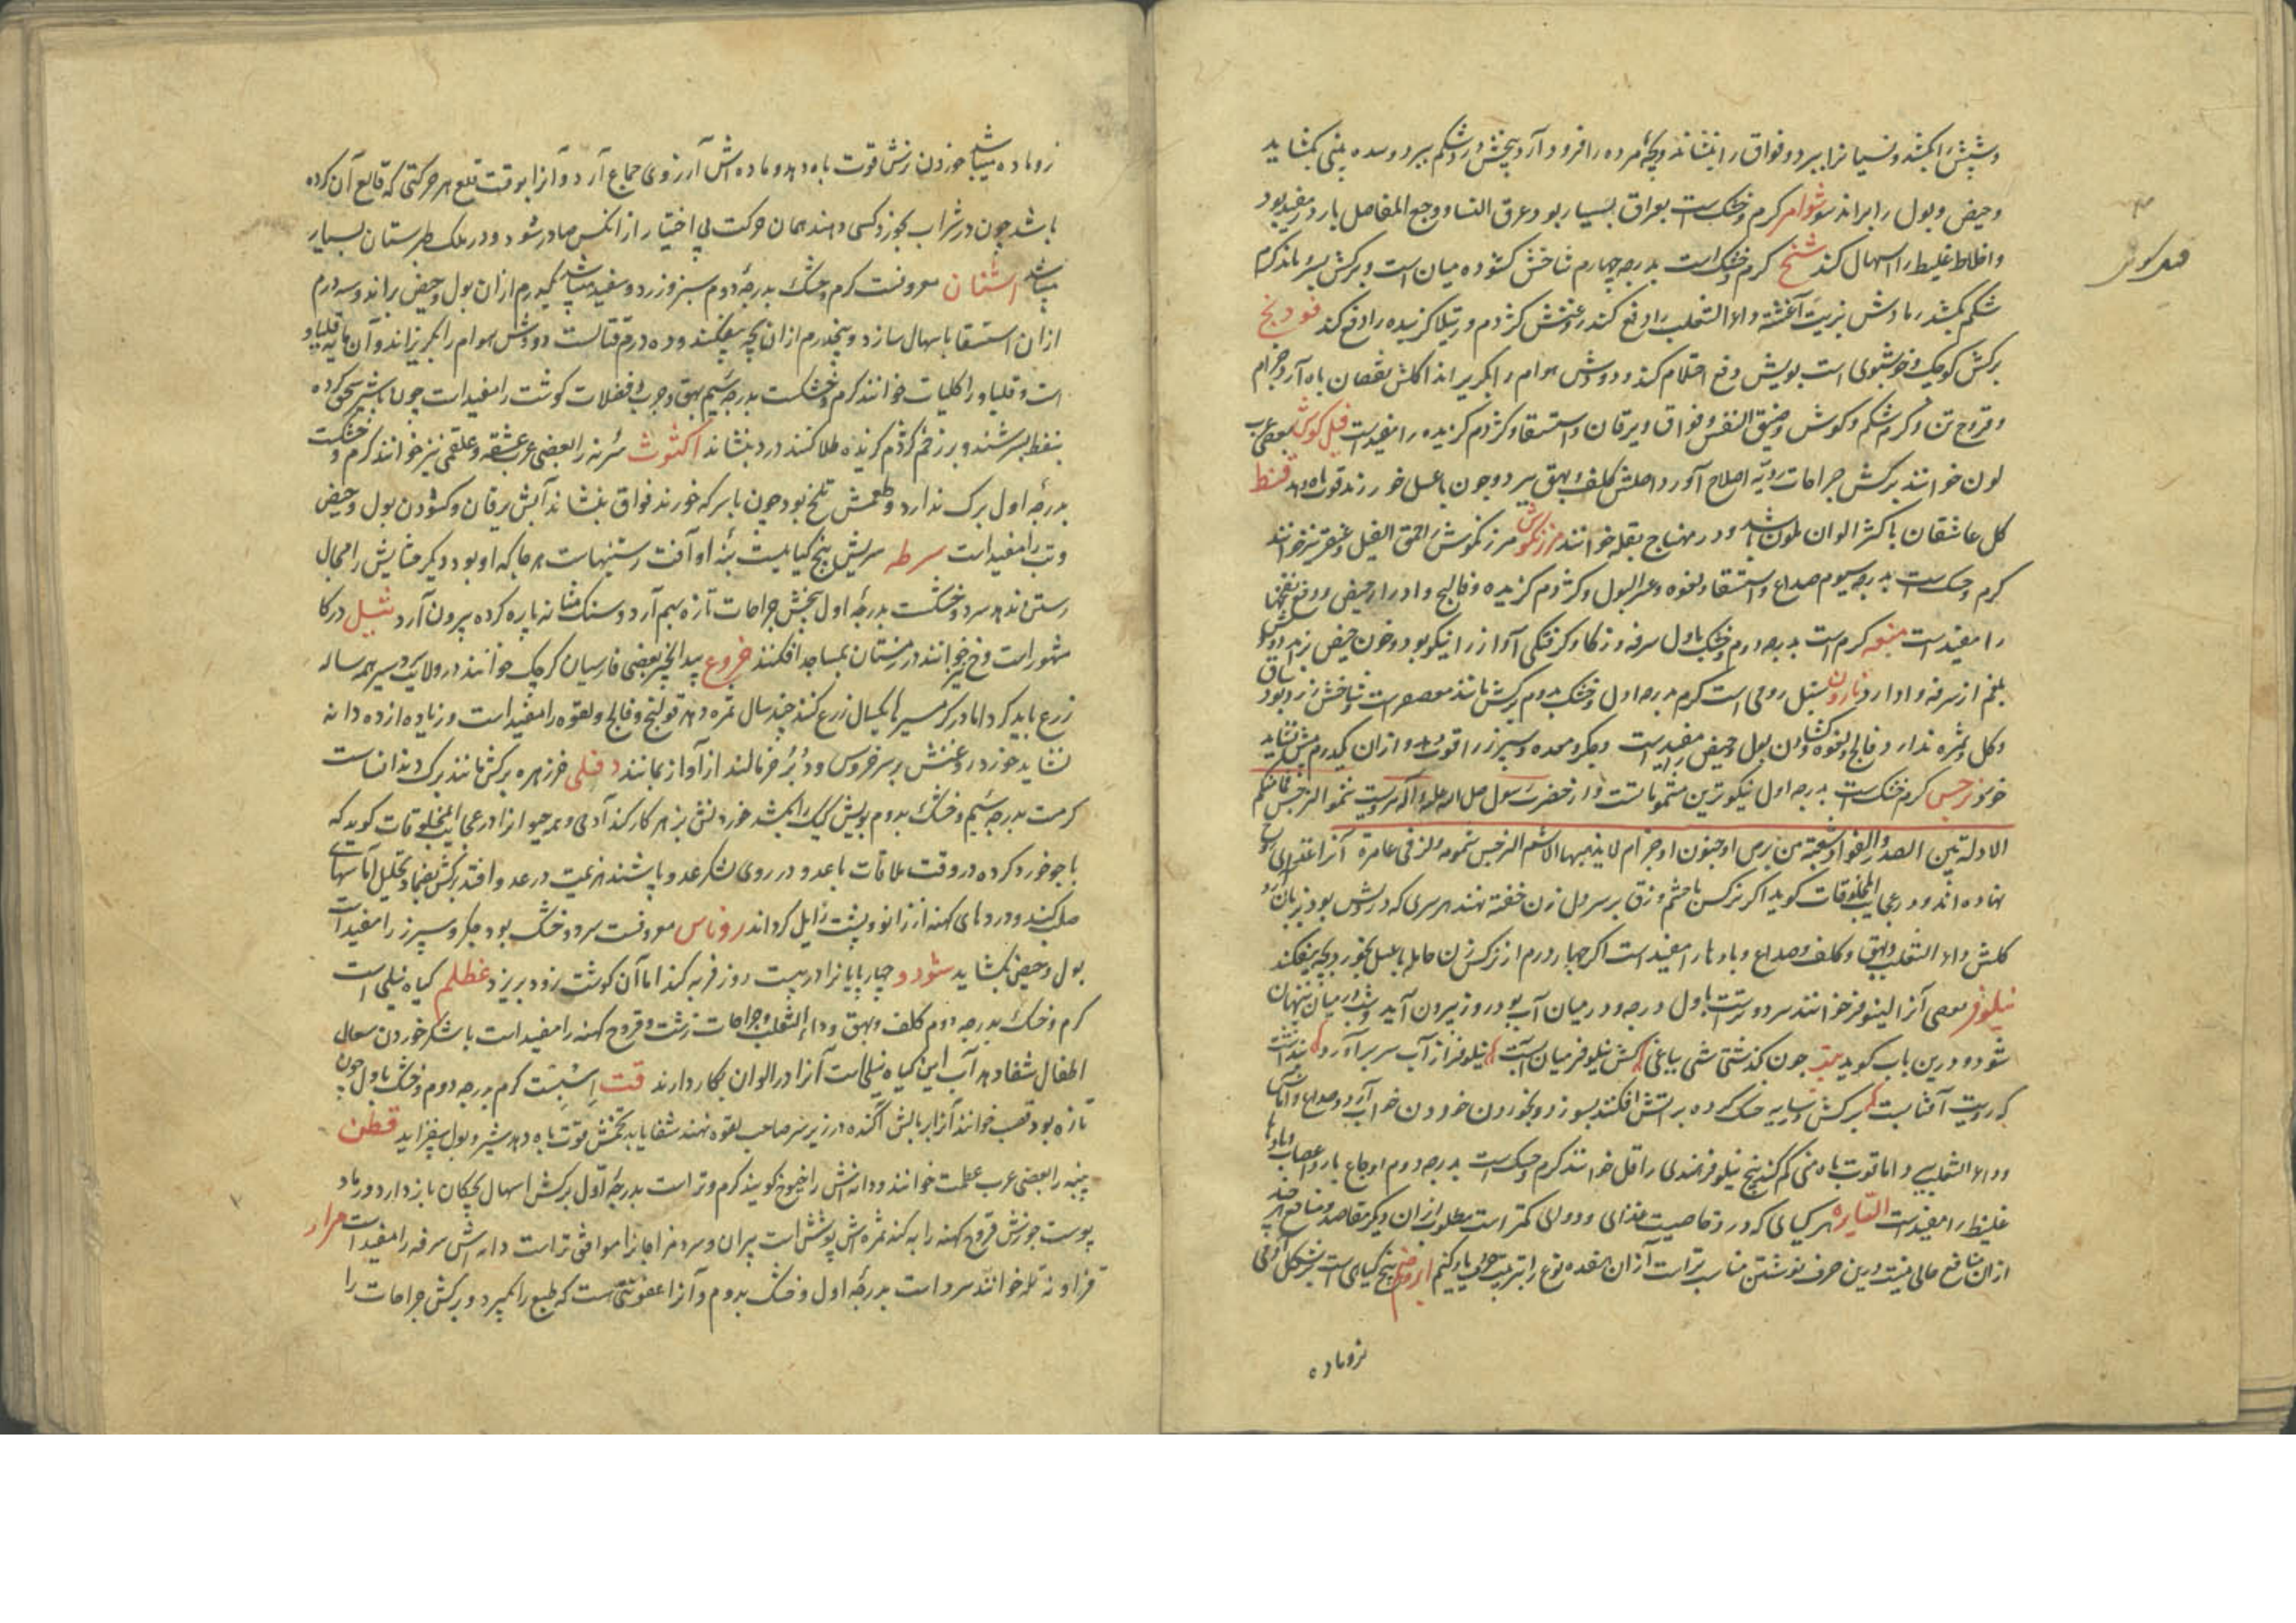 وشپش را بکشد ونسیانرا ببرد وفواق را بنشاند وبچهٔ مرده را فرود آرد وپیچش ودرد شکم ببرد وسده بینی بکشاید
وحیض وبول را براند شوامر کرم وخشکست بعراق بسیار بود عرق النسا ووجع المفاصل بارد را مفید بود
واخلاط غلیظ را اسهال کند شیح کرم وخشک است بدرجه چهارم شاخش کشوده میان است وبرکش بسرو ماند کرم
شکم بکشد رمادش بزیت آغشته داء الثعلب را دفع کند روغنش کژدم ورتیلا کزیده را دفع کند فودنج
برکش کوچک وخوشبوی است بویش دفع احتلام کند ودودش هوام را بکریزاند اکلش نقصان باه آرد وجذام
وقروح تن وکرم شکم وکوش وضیق النفس وفواق ویرقان واستسقا وکژدم کزیده را مفیدست فیل کوش بعضی عرب
لون خوانند برکش جراحات ردیه اصلاح آورد اصلش کلف وبهق ببرد وچون با عسل خورند قوت باه دهد قنط
کل عاشقان باکثر الوان ملون باشد ودر منهاج بقله خوانند مرزنکوش مرزنکوش آذان الفیل وعنقر نیز خوانند
کرم وخشکست بدرجه سیوم صداع واستسقا ولقوه وعسر البول وکژدم کزیده وفالج وادرار حیض ودفع نفخها
را مفیدست میعه کرم است بدرجه دوم وخشک باول سرفه وزکام وکرفتکی آواز را نیکو بود وخون حیض براند ودود
بلغم از سرفه وادارد ناردین سنبل رومی است کرم بدرجه اول وخشک بدوم برکش مانند معصفرست وشاخش زرد بود
وکل وثمره ندارد فالج ولقوه وکشادن بول وحیض را مفیدست وجکر ومعده وسپرز را قوت دهد وازان یکدرم بیش نشاید
خورد نرجس کرم وخشکست بدرجه اول نیکوترین مشموماتست واز حضرت رسول صلی الله علیه وآله مرویست شموا النرجس فما منکم
الا وله بین الصدر والفواد شعبة من برص او جنون او جذام لا یذهبها الا شم النرجس شموه ولو فی عام مرة آنرا
نهاده اند ودر عجایب المخلوقات کوید اکر نرکس با چشم وزق بر سر دل زن خفته نهند هر سری که در دلش بود بزبان آرد
کلش داء الثعلب وبهق وکلف وصداع وبادها را مفید است اکر چهار درم از نرکس زن حامله با عسل بخورد بچه بیفکند
نیلوفر بعضی آنرا لینوفر خوانند سرد وترست باول درجه ودر میان آب بود روز بیرون آید وشب در میان پنهان
شود ودرین باب کوید بیت چون کذشتی شبی بباغی کش نیلوفر میان آبست نیلوفر از آب سر برآورد پنداشت
که رویت آفتابست برکش در سایه خشک کرده بر آتش افکنند بسوزد وبخوردن خواب آرد وصداع
وداء الثعلب ببرد اما قوت باه ومنی کم کند بیخ نیلوفر هندی را قل خوانند کرم وخشکست بدرجه دوم اوجاع بارد واعصاب وبادها
غلیظ را مفیدست الثانیه هر کیاهی که در و خاصیت غذای ودوای کمتر است مطلوب ازان دیکر مقاصد ومنافع هر چند
ازان منافع خالی نیست ودرین حرف نوشتن مناسب تر است ازان هفده نوع را بترتیب حروف یاد کنیم بیخ کیاهی است بر شکل آدمی
نروماده
نروماده میباشد خوردن نرش قوت باه دهد وماده اش آرزوی جماع آرد وآنرا بوقت قلع هر حرکتی که قالع آن کرده
باشد چون در شراب بخورد کسی دهند همان حرکت بی اختیار از انکس صادر شود ودر ملک طبرستان بسیار
میباشد اشنان معروفست کرم وخشک بدرجهٔ دوم سبز وزرد وسفید میباشد یکدرم ازان بول وحیض براند وسه درم
ازان استسقا باسهال سازد وپنجدرم ازان بچه بیفکند وده درم قتالست دودش هوام را بکریزاند وآن مایه قلیاو
است وقلیاو را کلیات خوانند کرم وخشکست بدرجه سیم بهق وجرب وفضلات کوشت را مفید است چون باشیر سحق کرده
بنفط بسرشند وبر زخم کژدم کزیده طلا کنند درد بنشاند اکثوث سرنه را بعضی عرب عشقه وعلقمی نیز خوانند کرم وخشکست
بدرجهٔ اول برک ندارد وطعمش تلخ بود چون با سرکه خورند فواق بنشاند آبش یرقان وکشودن بول وحیض
وتب را مفید است سرطه سریش بیخ کیاهیست بنهٔ او آفت رستنیهاست هر جا که او بود دیکر حشایش را مجال
رستن ندهد سرد وخشکست بدرجهٔ اول بیخش جراحات تازه بهم آرد وسنک مثانه پاره کرده بیرون آرد ثیل در کا
مشهور است وخ نیز خوانند در زمستان بمساجد افکنند خروع بید انجیر بعضی فارسیان کرچک خوانند در ولایت سردسیر همه ساله
زرع باید کرد اما در کرمسیر ها یکسال زرع کنند چند سال ثمره دهد قولنج وفالج ولقوه را مفید است وزیاده از ده دانه
نشاید خورد روغنش بر سر خروس ودبر خر مالند از آواز بمانند دفلی خرزهره برکش مانند برک دندانسات
کرمست بدرجه سیم وخشک بدوم بویش کیک را بکشد خوردنش بزهر کار کند آدمی وهمه حیوانرا در عجایب المخلوقات کوید که
با جو خرد کرده در وقت ملاقات با عدو در روی لشکر عدو پاشند هزیمت در عدو افتد برکش بضماد تحلیل آماسهای
صلب کند ودردهای کهنه از زانو وپشت زایل کرداند روناس معروفست سرد وخشک بود جکر وسپرز را مفید است
بول وحیض بکشاید شودو چارپایانرا در بیست روز فربه کند اما آن کوشت زود بریزد غظلم کیاه نیلی است
کرم وخشک بدرجه دوم کلف وبهق وداء الثعلب وجراحات زشت وقروح کهنه را مفید است با شکر خوردن سعال
اطفال شفا دهد آب این کیاه نیلی است آنرا در الوان بکار دارند قت اسبست کرم بدرجه دوم وخشک باول چون
تازه بود قصب خوانند آنرا بربالش آکنده در زیر سر صاحب لقوه نهند شفا یابد تخمش قوت باه دهد وشیر وبول بیفزاید قطن
پنبه را بعضی عرب عطب خوانند ودانه اش را خیبوج کویند کرم وتر است بدرجهٔ اول برکش اسهال بچکان باز دارد ورماد
پوست جوزش قروح کهنه را به کند ثمره اش پوشش است پیران وسرد مزاجانرا موافق تر است دانه اش سرفه را مفید است مرار
قزاونه تله خوانند سرد است بدرجهٔ اول وخشک بدوم وآنرا عفوصتی هست که طبع را بکیرد وبرکش جراحات را